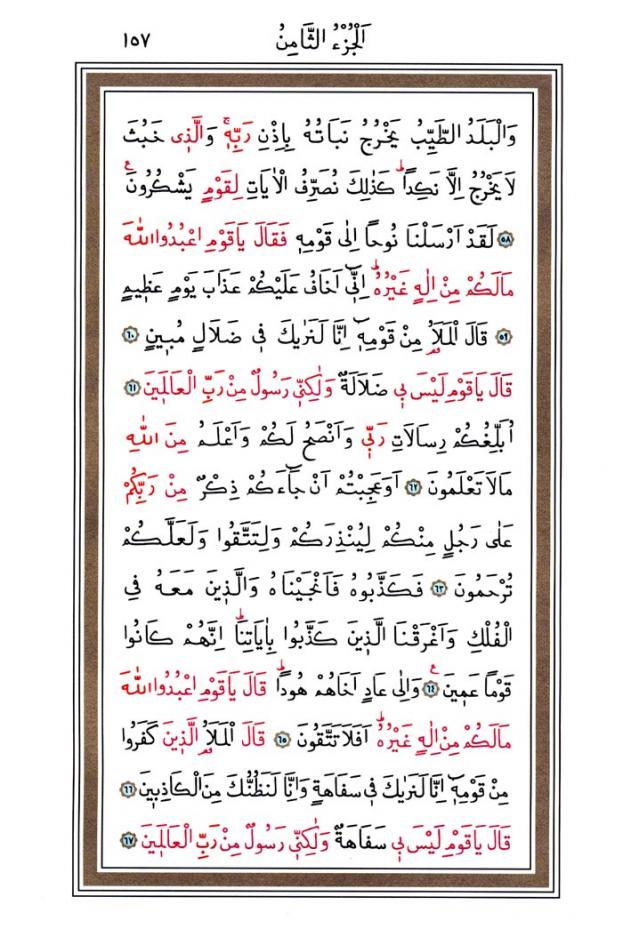 اَلْجُزْءُ الثَّامِنُ
١٥٧
وَالْبَلَدُ الطَّيِّبُ يَخْرُجُ نَبَاتُهُ بِاِذْنِ رَبِّهِۚ وَالَّذ۪ى خَبُثَ
لَا يَخْرُجُ اِلَّا نَكِداًۜ كَذٰلِكَ نُصَرِّفُ الْاٰيَاتِ لِقَوْمٍ يَشْكُرُونَ۟
﴿٥٨﴾ لَقَدْ اَرْسَلْنَا نُوحاً اِلٰى قَوْمِه۪ فَقَالَ يَاقَوْمِ اعْبُدُوا اللّٰهَ
مَالَكُمْ مِنْ اِلٰهٍ غَيْرُهُۜ اِنّ۪ٓى اَخَافُ عَلَيْكُمْ عَذَابَ يَوْمٍ عَظ۪يمٍ
﴿٥٩﴾ قَالَ الْمَلَاُ مِنْ قَوْمِه۪ٓ اِنَّا لَنَرٰيكَ ف۪ى ضَلَالٍ مُب۪ينٍ ﴿٦٠﴾
قَالَ يَاقَوْمِ لَيْسَ ب۪ى ضَلَالَةٌ وَلٰكِنّ۪ى رَسُولٌ مِنْ رَبِّ الْعَالَم۪ينَ ﴿٦١﴾
اُبَلِّغُكُمْ رِسَالَاتِ رَبّ۪ى وَاَنْصَحُ لَكُمْ وَاَعْلَمُ مِنَ اللّٰهِ
مَالَا تَعْلَمُونَ ﴿٦٢﴾ اَوَعَجِبْتُمْ اَنْ جَٓاءَكُمْ ذِكْرٌ مِنْ رَبِّكُمْ
عَلٰى رَجُلٍ مِنْكُمْ لِيُنْذِرَكُمْ وَلِتَتَّقُوا وَلَعَلَّكُمْ
تُرْحَمُونَ ﴿٦٣﴾ فَكَذَّبُوهُ فَاَنْجَيْنَاهُ وَالَّذ۪ينَ مَعَهُ فِى
الْفُلْكِ وَاَغْرَقْنَا الَّذ۪ينَ كَذَّبُوا بِاٰيَاتِنَاۜ اِنَّهُمْ كَانُوا
قَوْماً عَم۪ينَ۟ ﴿٦٤﴾ وَاِلٰى عَادٍ اَخَاهُمْ هُوداًۜ قَالَ يَاقَوْمِ اعْبُدُوا اللّٰهَ
مَالَكُمْ مِنْ اِلٰهٍ غَيْرُهُۜ اَفَلَا تَتَّقُونَ ﴿٦٥﴾ قَالَ الْمَلَاُ الَّذ۪ينَ كَفَرُوا
مِنْ قَوْمِه۪ٓ اِنَّا لَنَرٰيكَ ف۪ى سَفَاهَةٍ وَاِنَّا لَنَظُنُّكَ مِنَ الْكَاذِب۪ينَ ﴿٦٦﴾
قَالَ يَاقَوْمِ لَيْسَ ب۪ى سَفَاهَةٌ وَلٰكِنّ۪ى رَسُولٌ مِنْ رَبِّ الْعَالَم۪ينَ ﴿٦٧﴾